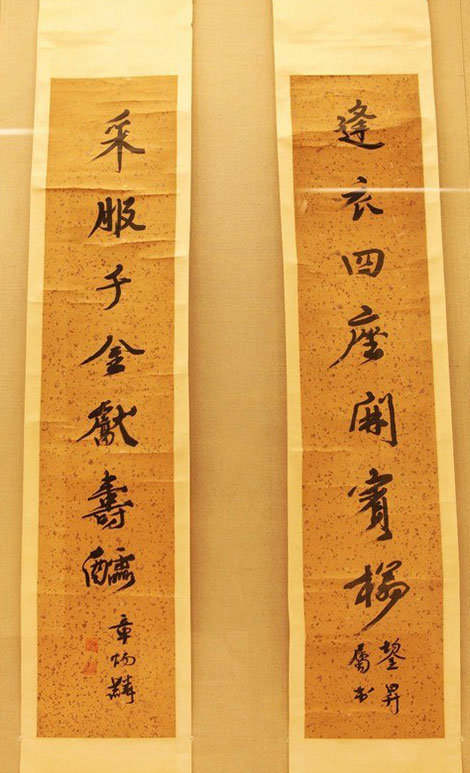 逢衣四座開賓榻
昇
屬書
采服千金獻壽醹
章炳麟